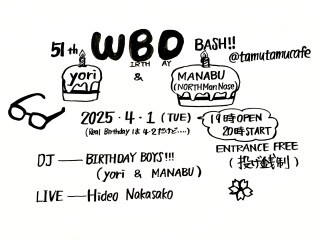 51th WBD BASH!!
IRTH AY
@tamutamucafe
yori & MANABU
(NORTH Man Nose)
2025・4・1 (TUE)
(Real Birthday は 4・2だけど....)
19時OPEN
20時START
ENTRANCE FREE
(投げ銭制)
DJ — BIRTHDAY BOYS!!!
(yori & MANABU)
LIVE — Hideo Nakasako